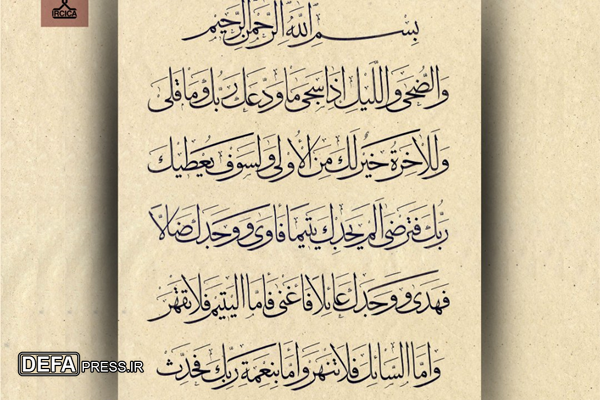 IRCICA
بسم الله الرحمن الرحيم
والضحى والليل اذا سجى ما ودعك ربك وما قلى
وللآخرة خير لك من الأولى ولسوف يعطيك
ربك فترضى ألم يجدك يتيما فآوى ووجدك ضالا
فهدى ووجدك عائلا فاغنى فاما اليتيم فلا تقهر
واما السائل فلا تنهر وأما بنعمة ربك فحدث
DEFAPRESS.IR